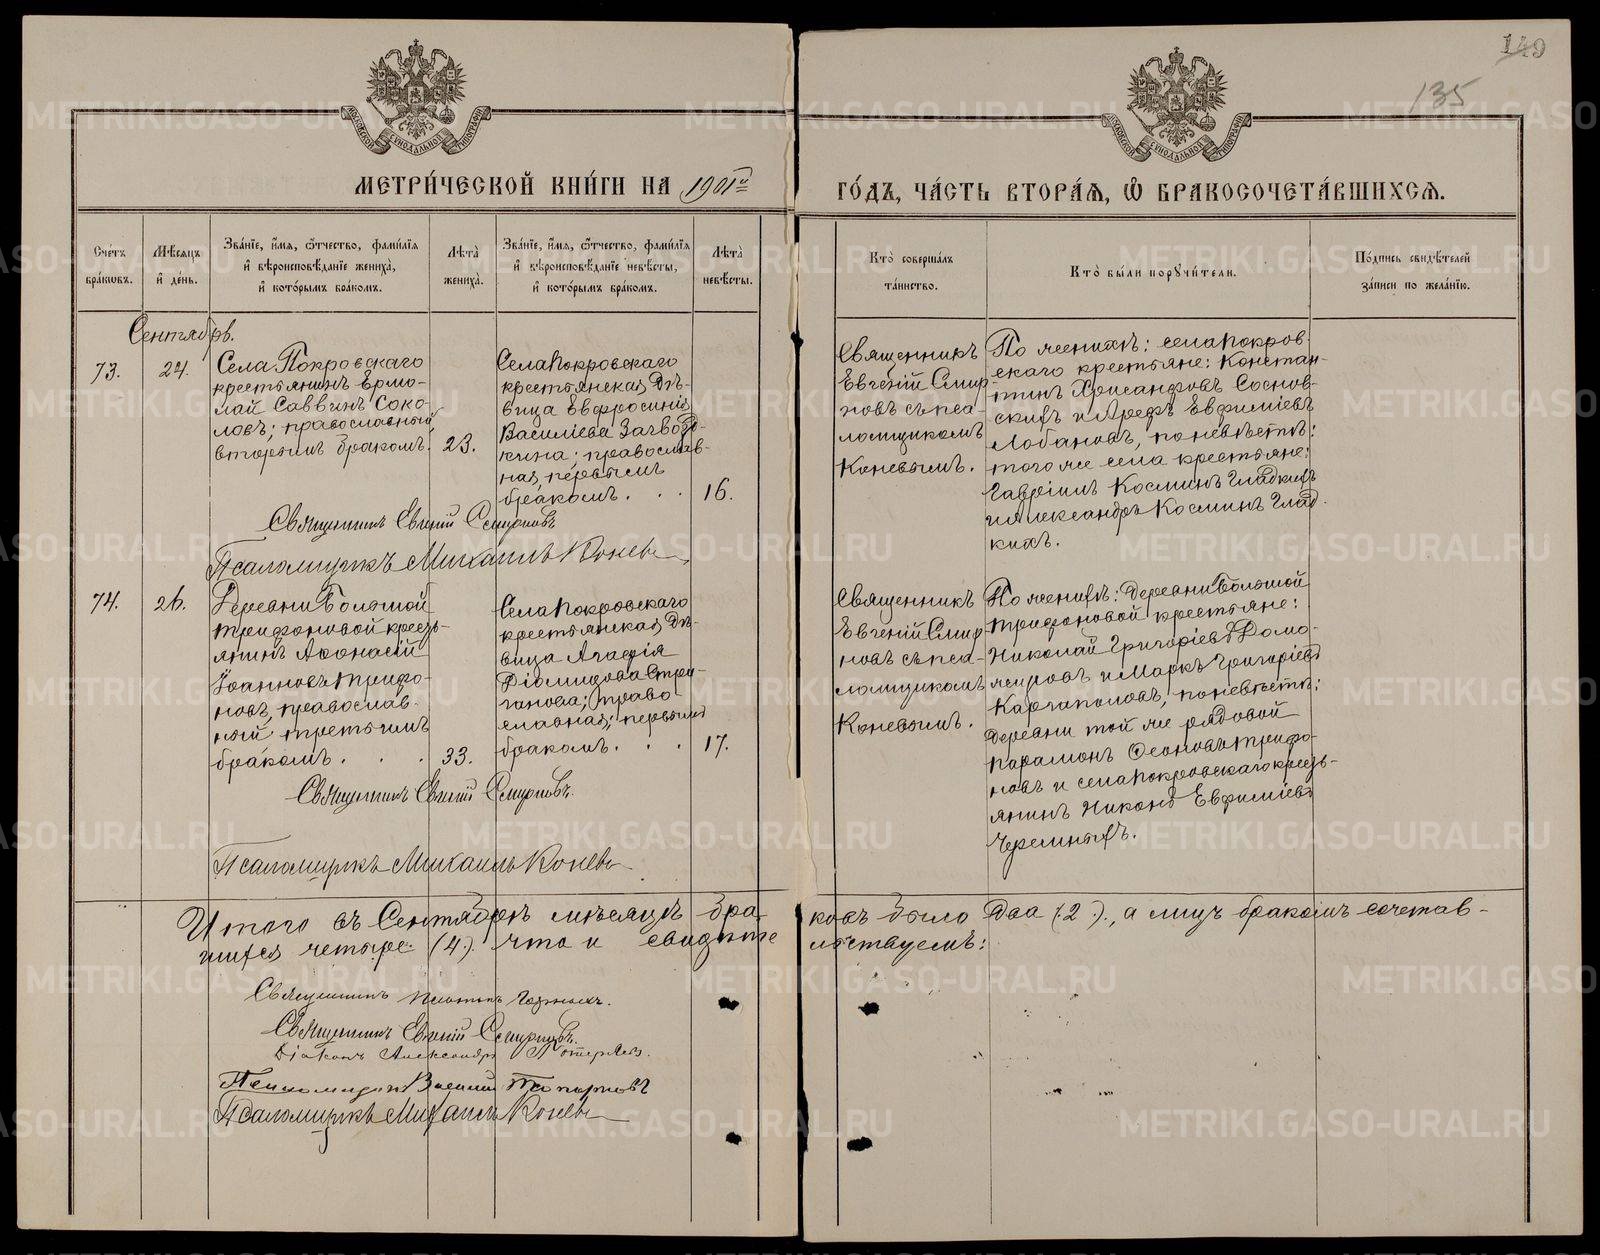 149
135
МОСКОВСКОЙ СѴНОДАЛЬНОЙ ТИПОГРАФІИ
МОСКОВСКОЙ СѴНОДАЛЬНОЙ ТИПОГРАФІИ
МЕТРИ́ЧЕСКОЙ КНИ́ГИ НА 1901й
ГО́ДЪ, ЧА́СТЬ ВТОРА́Я, Ѽ БРАКОСОЧЕТА́ВШИХСЯ.
Сче́тъ бра́кѡвъ.
Мѣ́сяцъ и҆ де́нь.
Зва́нїе, и҆́мя, ѻ҆́тчество, фами́лїя и҆ вѣроисповѣ́данїе жениха̀, и҆ кото́рымъ бра́комъ.
Лѣ́та жениха̀.
Зва́нїе, и҆́мя, ѻ҆́тчество, фами́лїя и҆ вѣроисповѣ́данїе невѣ́сты, и҆ кото́рымъ бра́комъ.
Лѣ́та невѣ́сты.
Кто̀ соверша́лъ та́инство.
Кто̀ бы́ли порꙋчи́тели.
По́дпись свидѣ́телей за́писи по жела́нїю.
Сентябрь.
73.
24.
Села Покровскаго
крестьянинъ Ермо-
лай Саввинъ Соко-
ловъ; православный,
вторымъ бракомъ.
23.
Села Покровскаго
крестьянская дѣ-
вица Евфросинія
Василіева
православ-
ная, первымъ
бракомъ . . .
16.
Священникъ
Евгеній Смир-
новъ съ пса-
ломщикомъ
Коневымъ.
По женихѣ: села Покров-
скаго крестьяне: Констан-
тинъ Хрисанфовъ Соснов-
скихъ и Арефъ Евфиміевъ
Лобановъ, по невѣстѣ:
того же села крестьяне:
Гавріилъ Косминъ Гладкихъ
и Александръ Косминъ Глад-
кихъ.
Священникъ Евгеній Смирновъ
Псаломщикъ Михаилъ Коневъ
74.
26.
Деревни Большой
Трифоновой кресть-
янинъ Афонасій
Іоанновъ Трифо-
новъ, православ-
ный, третьимъ
бракомъ . . .
33.
Села Покровскаго
крестьянская дѣ-
вица Агафія
Діомидова Стри-
ганова; право
славная; первымъ
бракомъ . . .
17.
Священникъ
Евгеній Смир
новъ съ пса-
ломщикомъ
Коневымъ.
По женихѣ: деревни Большой
Трифоновой крестьяне:
Николай Григоріевъ Домо-
жировъ и Маркъ Григоріевъ
Каргаполовъ, по невѣстѣ:
деревни той же рядовой
Парамонъ Трифо-
новъ и села Покровскаго кресть-
янинъ Никонъ Евфиміевъ
Черемныхъ.
Священникъ Евгеній Смирновъ.
Псаломщикъ Михаилъ Коневъ
Итого въ Сентябрѣ мѣсяцѣ бра-
ковъ было два (2)., а лицъ бракомъ сочетав-
шихся четыре (4). что и свидѣте
льствуемъ:
Священникъ Платонъ Горныхъ.
Священникъ Евгеній Смирновъ.
Діаконъ Александръ
Псаломщикъ Василій Топорковъ
Псаломщикъ Михаилъ Коневъ
METRIKI.GASO-URAL.RU